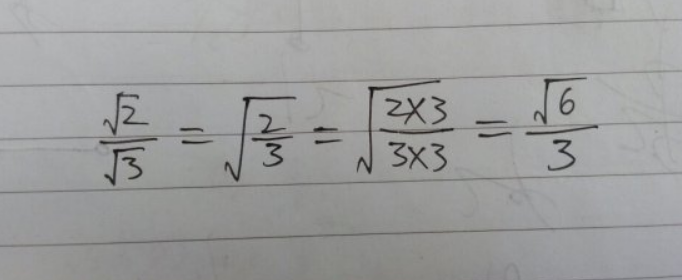 √2/√3 = √(2/3) = √((2×3)/(3×3)) = √6/3